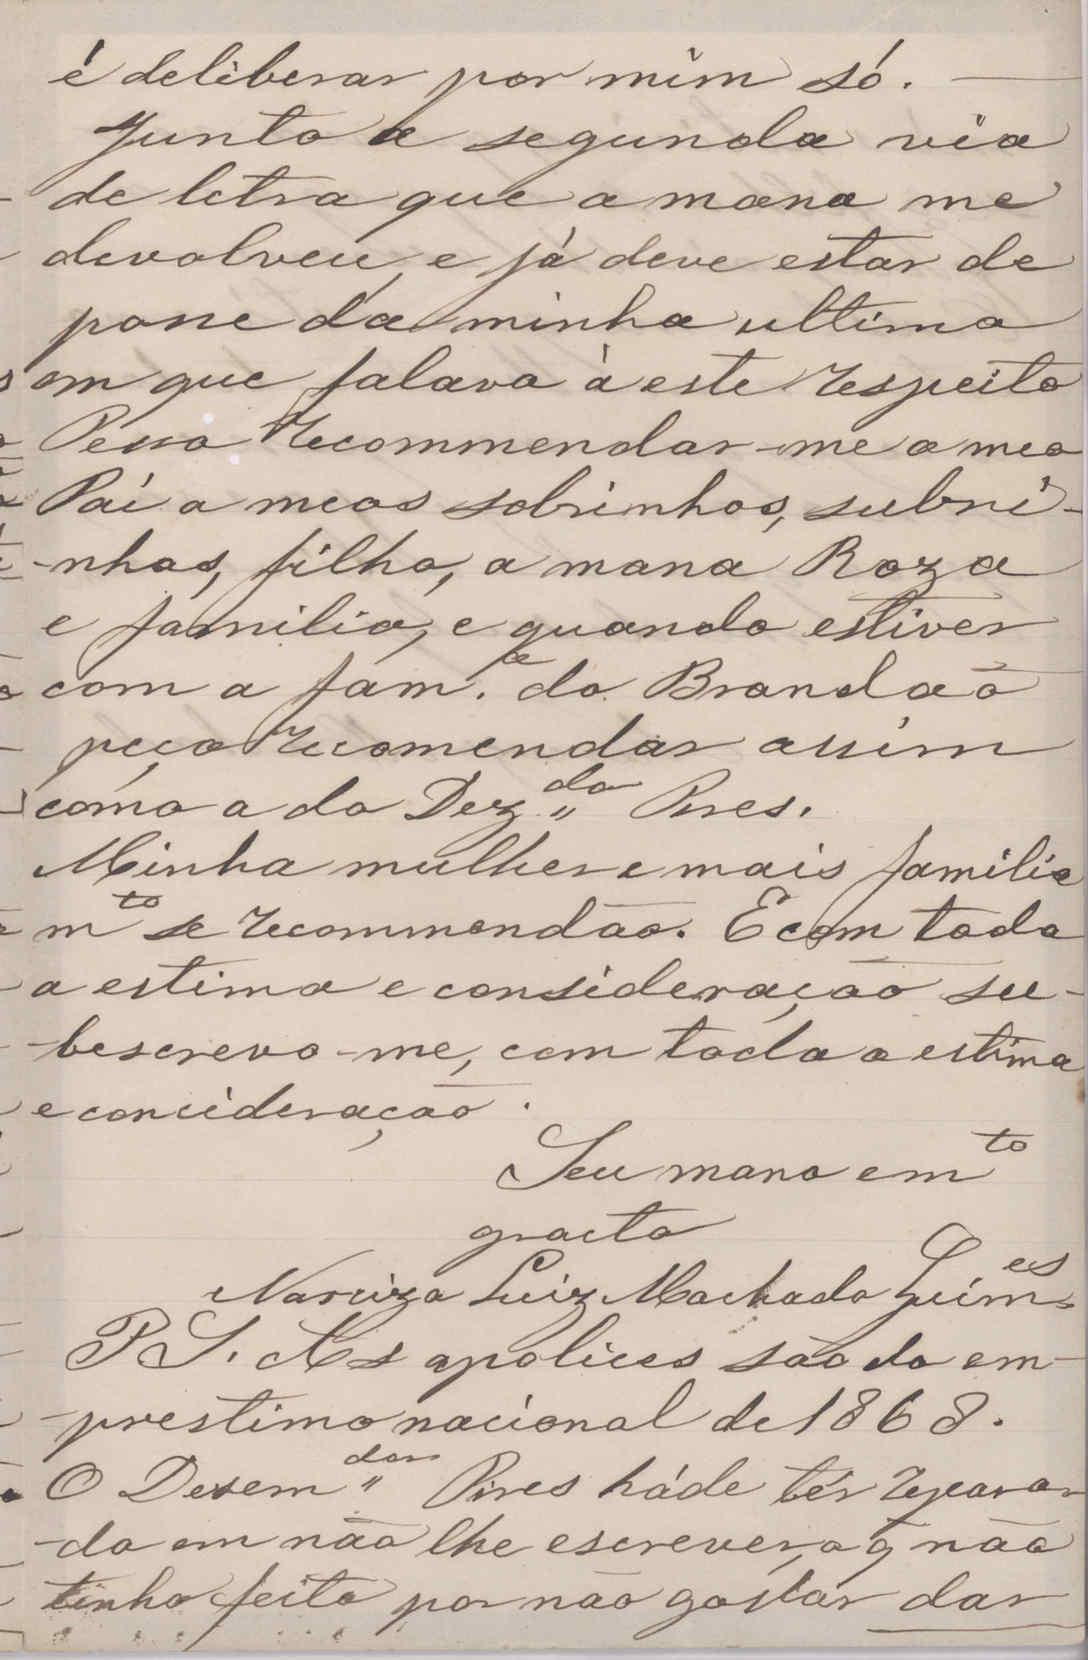 é deliberar por mim só. —
Junto a segunda via
de letra que a mana me
devolveu, e já deve estar de
posse da minha ultima
em que falava à este respeito
Pesso recommendar-me a meo
Pai a meos sobrinhos, subri-
-nhas, filho, a mana Roza
e familia, e quando estiver
com a fam.ª do Brandão
peço recomendar assim
como a do Dez.do Pires.
Minha mulher e mais familia
mto se recommendão. E com toda
a estima e consideração su-
-bescrevo-me, com toda a estima
e concideração.
Seu mano e mto
gracto
Narcizo Luiz Machado Guimes
P S. As apolices são do em-
-prestimo nacional de 1868.
O Desemdor Pires háde ter repara-
-do em não lhe escrever, o q̃ não
tinha feito por não gostar dar